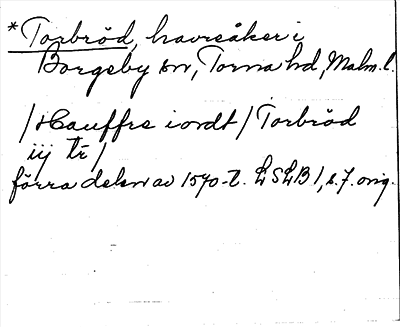 *Torbröd, havreåker i
Borgeby sn, Torna hd, Malm. l.
/Hauffre iordt/ Torbröd
iij tr/
förra delen av 1570-t. LSLB 1, s. 7. orig.